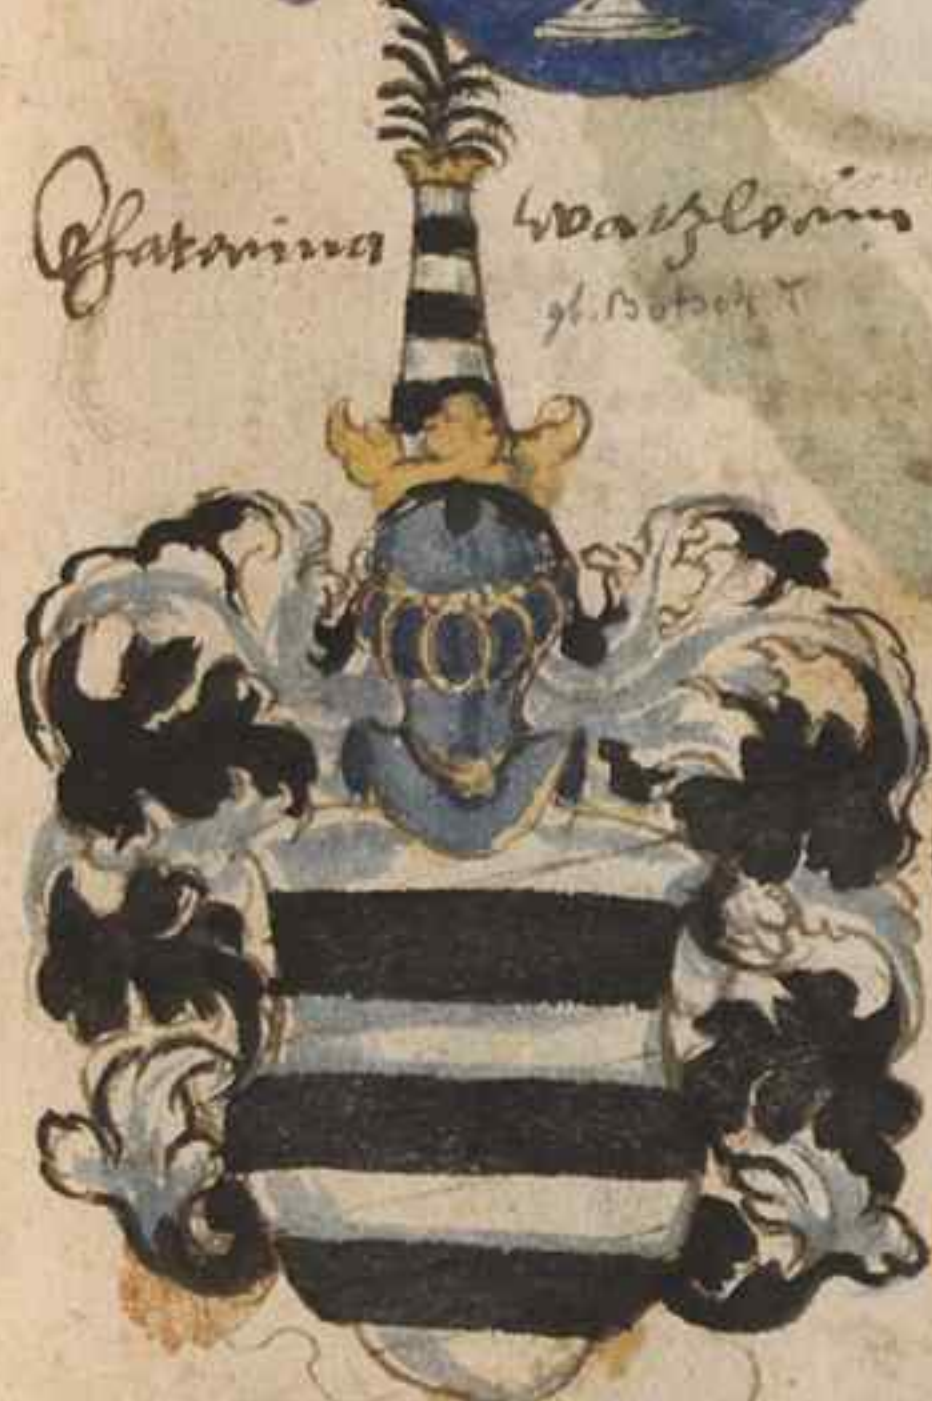 Chatarina Watzlerin
gb. Botsch